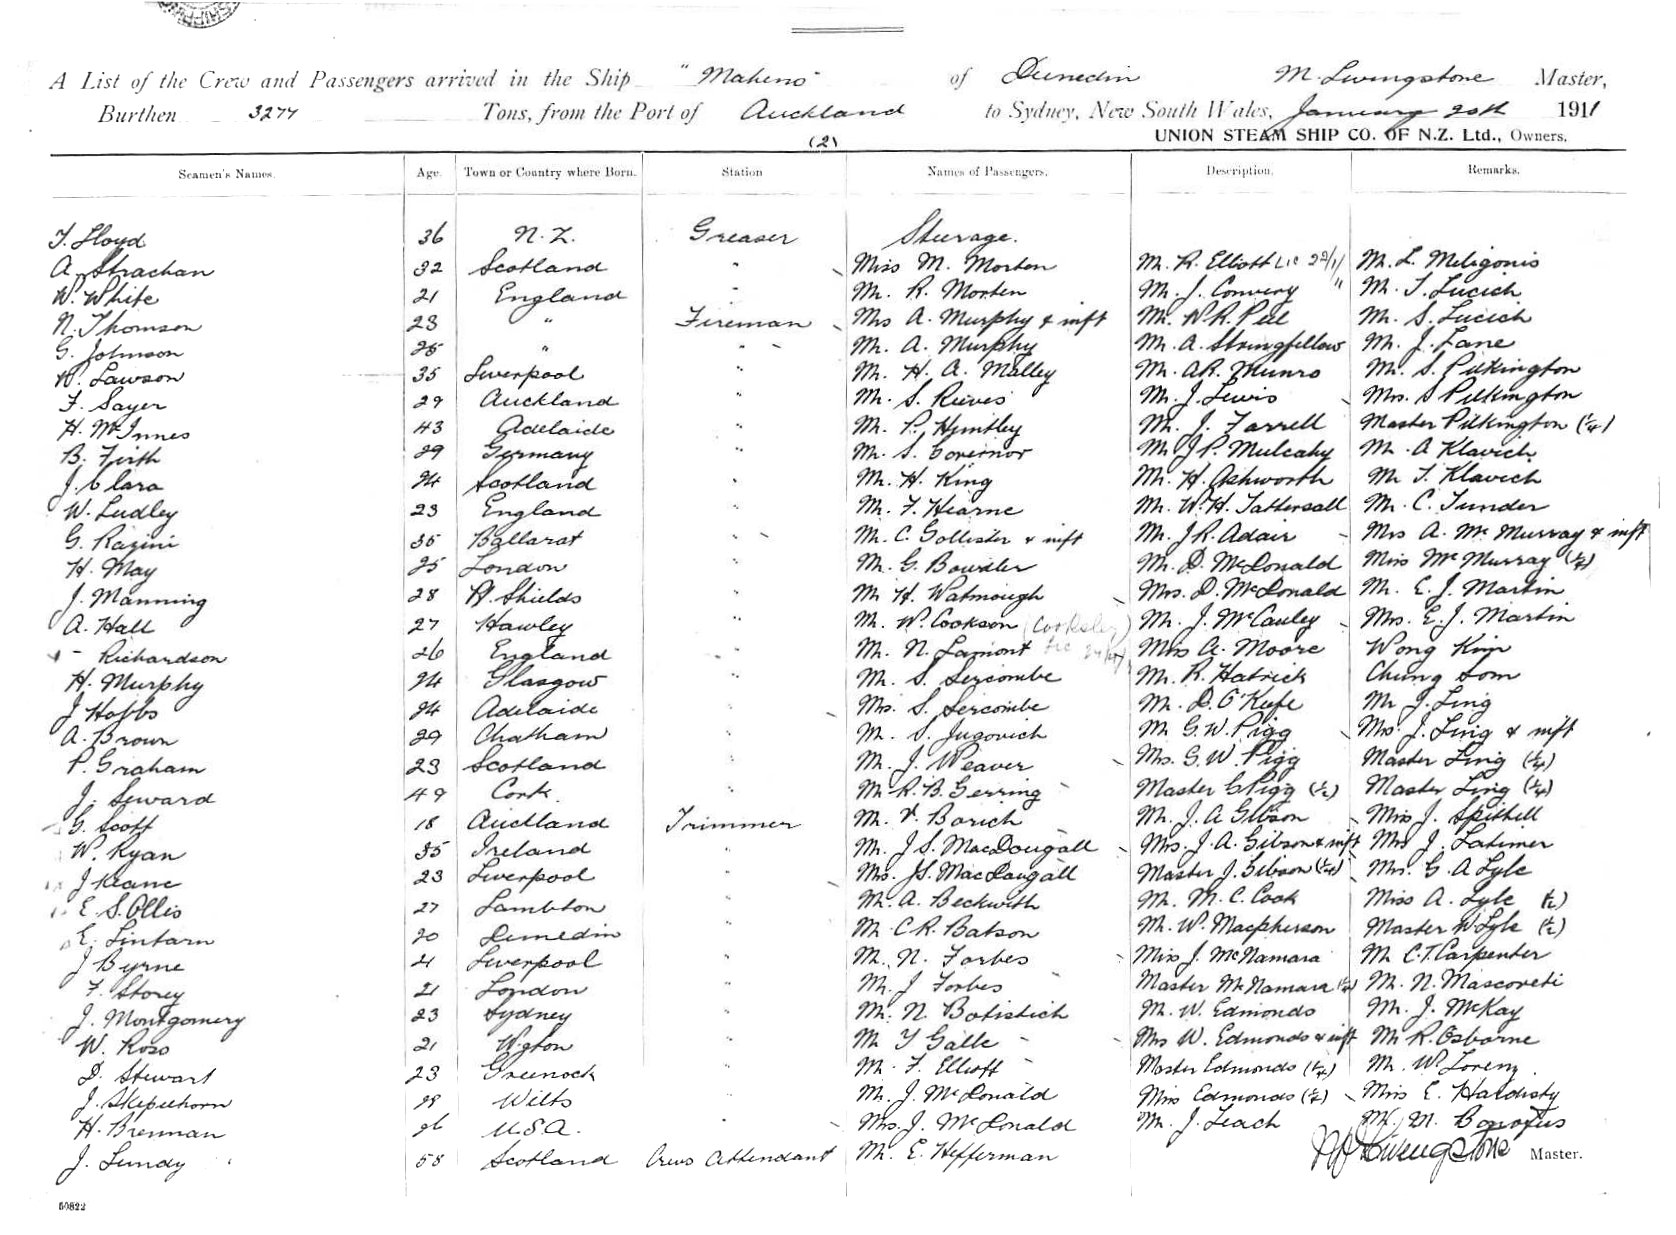 A List of the Crew and Passengers arrived in the Ship "Maheno" of Dunedin M. Livingstone Master,
Burthen 3277 Tons, from the Port of Auckland to Sydney, New South Wales, January 20th 1911
(2) UNION STEAM SHIP CO. OF N.Z. Ltd., Owners.
Seamen's Names. Age. Town or Country where Born. Station Names of Passengers. Description. Remarks.
T. Lloyd 36 N.Z. Greaser Steerage.
A. Strachan 32 Scotland " Miss M. Morten Mr. R. Elliott Lic Mr. L. Meligonis
W. White 21 England " Mr. R. Morten Mr. J. Convery " Mr. T. Lucich
N. Thomson 23 " Fireman Mrs A. Murphy & inft Mr. W.R. Peel Mr. S. Lucich
G. Johnson 25 " " Mr. A. Murphy Mr. A. Stringfellow Mr. J. Lane
W. Lawson 35 Liverpool " Mr. H. A. Malley Mr. A.R. Munro Mr. S. Pilkington
F. Sayer 29 Auckland " Mr. S. Reeves Mr. J. Lewis Mrs. S Pilkington
H. McInnes 43 Adelaide " Mr. P. Hintley Mr. J. Farrell Master Pilkington (¼)
B. Firth 29 Germany " Mr. S. Governor Mr J.P. Mulcahy Mr. A Klavich
J. Clara 24 Scotland " Mr. H. King Mr. H. Ashworth Mr T. Klavich
W. Ludley 23 England " Mr. F. Hearne Mr. W.H. Tattersall Mr. C. Tunder
G. Razini 35 Ballarat " Mr. C. Gollister & inft Mr. J.R. Adair Mrs A. McMurray & inft
H. May 25 London " Mr. G. Bowdler Mr. D. McDonald Miss McMurray (¼)
J. Manning 28 N. Shields " Mr H. Watmough Mrs. D. McDonald Mr. E. J. Martin
A. Hall 27 Hawley " Mr. W. Cookson (Cooksley) Mr. J. McCauley Mrs. E. J. Martin
- Richardson 26 England " Mr. N. Lamont Lic Miss A. Moore Wong Kim
H. Murphy 24 Glasgow " Mr. S. Sercombe Mr. R. Hatrick Chung Som
J Hobbs 24 Adelaide " Mrs. S. Sercombe Mr. D. O'Keefe Mr J. Ling
A. Brown 29 Chatham " Mr. S. Jugovich Mr G.W. Pigg Mrs. J. Ling & inft
P. Graham 23 Scotland " Mr. J. Weaver Mrs. G.W. Pigg Master Ling (¼)
J. Seward 49 Cork. " Mr R.B. Gerring Master C Pigg (½) Master Ling (¼)
G. Scott 18 Auckland Trimmer Mr. V. Borich Mr. J. A Gibson Miss J. Spithill
W. Ryan 35 Ireland " Mr. J.S. MacDougall Mrs. J. A. Gibson & inft Mrs J. Latimer
J Keane 23 Liverpool " Mrs. J.S. MacDougall Master J. Gibson (¼) Mrs. G. A Lyle
E. S. Ollis 27 Lambton " Mr. A. Beckwith Mr. M. C. Cook Miss A. Lyle (½)
E. Lintarn 20 Dunedin " Mr. C.R. Batson Mr. W. Macpherson Master W Lyle (½)
J Byrne 21 Liverpool " Mr. N. Forbes Miss J. McNamara Mr C.T. Carpenter
F. Storey 21 London " Mr. J Forbes Master McNamara (¼) Mr. N. Mascoveti
J. Montgomery 23 Sydney " Mr. N. Batistich Mr. W. Edmonds Mr. J. McKay
W. Ross 21 Wgton " Mr Y Galle Mrs W. Edmonds & inft Mr R. Osborne
D. Stewart 23 Greenock " Mr. F. Elliott Master Edmonds (¼) Mr. W. Lorenz
J. Skepelhorn 28 Wilts " Mr. J. McDonald Miss Edmonds (¼) Miss E. Hardisty
H. Brennan 26 U.S.A. " Mrs. J. McDonald Mr. J. Leach Mr. M.
J. Lundy 58 Scotland Crews Attendant Mr. E. Hefferman M Livingstone Master.
50822